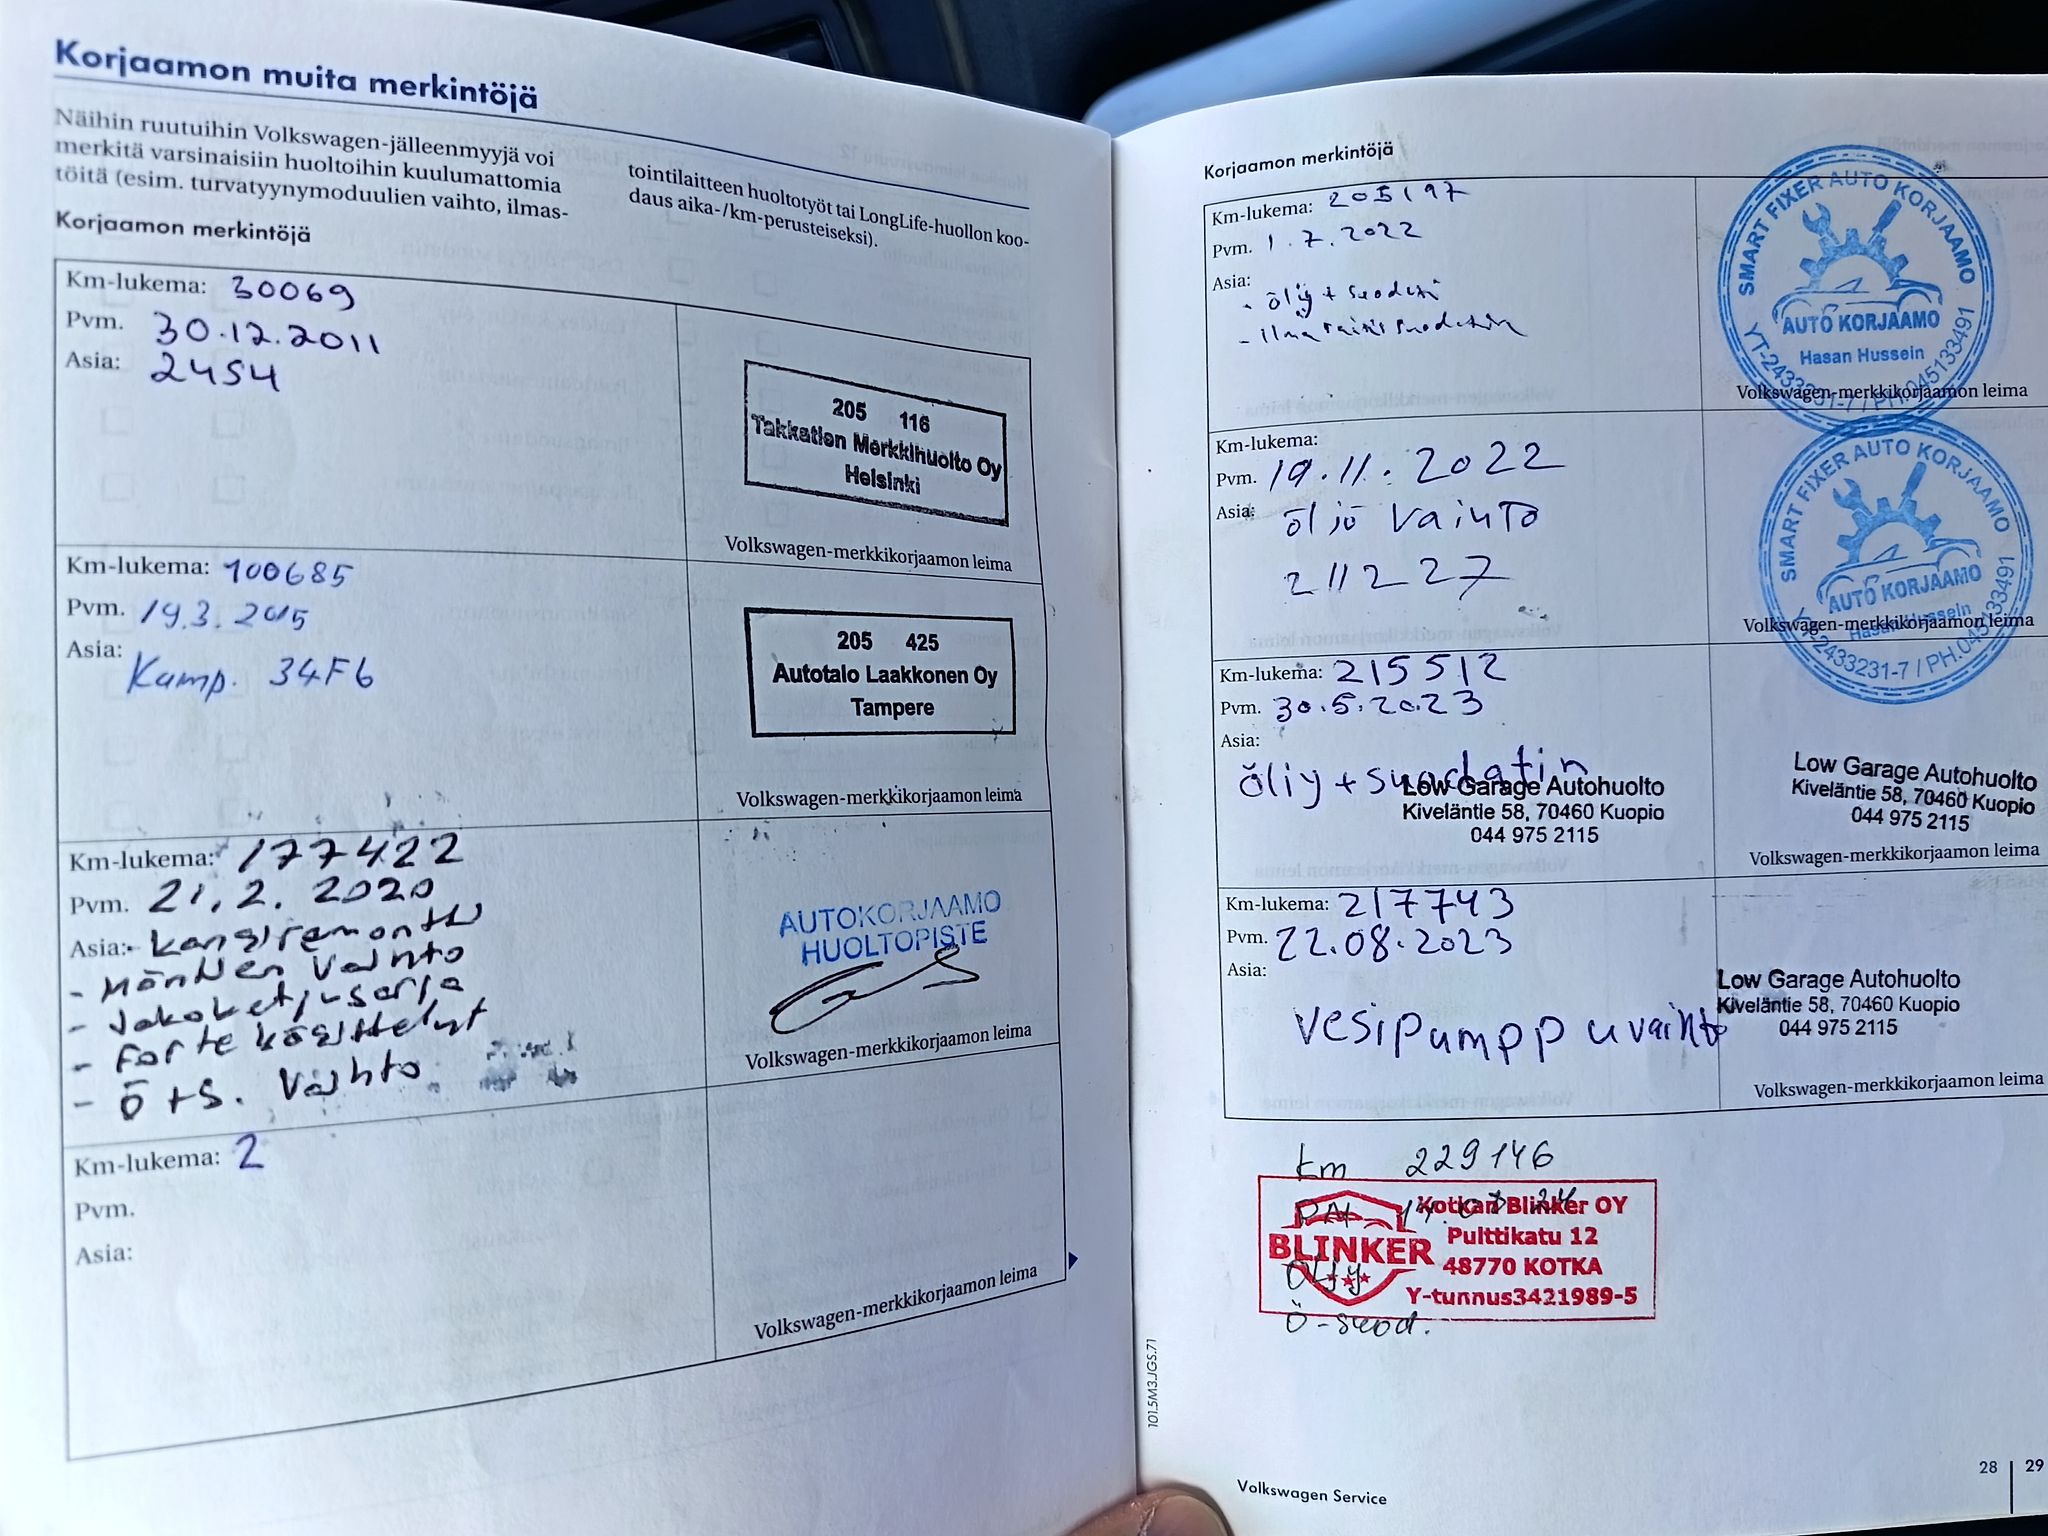 Korjaamon muita merkintöjä
Näihin ruutuihin Volkswagen-jälleenmyyjä voi
merkitä varsinaisiin huoltoihin kuulumattomia
töitä (esim. turvatyynymoduulien vaihto, ilmas-
tointilaitteen huoltotyöt tai LongLife-huollon koo-
daus aika-/km-perusteiseksi).
Korjaamon merkintöjä
Km-lukema: 30069
Pvm. 30.12.2011
Asia: 2454
205 116
Takkatien Merkkihuolto Oy
Helsinki
Volkswagen-merkkikorjaamon leima
Km-lukema: 100685
Pvm. 19.3.2015
Asia:
Kamp. 34F6
205 425
Autotalo Laakkonen Oy
Tampere
Volkswagen-merkkikorjaamon leima
Km-lukema: 177422
Pvm. 21.2.2020
Asia:- kansiremontti
- Männien vaihto
- Jakoketjusarja
- Forte käsittelyt
- Ö+S. vaihto
AUTOKORJAAMO
HUOLTOPISTE
Volkswagen-merkkikorjaamon leima
Km-lukema: 2
Pvm.
Asia:
Volkswagen-merkkikorjaamon leima
Korjaamon merkintöjä
Km-lukema: 205197
Pvm. 1.7.2022
Asia:
- öliy + suodati
SMART FIXER AUTO KORJAAMO
AUTO KORJAAMO
Hasan Hussein
YT-2433231-7 / PH.045133491
Volkswagen-merkkikorjaamon leima
Km-lukema:
Pvm. 19.11.2022
Asia: öljö vaihto
211227
SMART FIXER AUTO KORJAAMO
AUTO KORJAAMO
Hasan Hussein
YT-2433231-7 / PH.045133491
Volkswagen-merkkikorjaamon leima
Km-lukema: 215512
Pvm. 30.5.2023
Asia:
öliy + suodatin
Low Garage Autohuolto
Kiveläntie 58, 70460 Kuopio
044 975 2115
Low Garage Autohuolto
Kiveläntie 58, 70460 Kuopio
044 975 2115
Volkswagen-merkkikorjaamon leima
Km-lukema: 217743
Pvm. 22.08.2023
Asia:
vesipumppu vaihto
Low Garage Autohuolto
Kiveläntie 58, 70460 Kuopio
044 975 2115
Volkswagen-merkkikorjaamon leima
km 229146
Kotkan Blinker OY
BLINKER
Pulttikatu 12
48770 KOTKA
Y-tunnus3421989-5
Öljy
Ö-suod.
101.5M3.JGS.71
Volkswagen Service
28 29